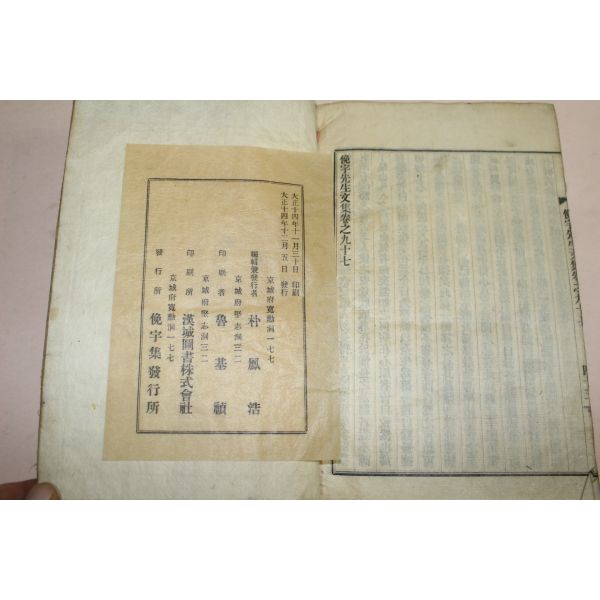 俛宇先生文集卷之九十七
大正十四年十一月三十日 印刷
大正十四年十二月五日 發行
京城府寬勳洞一七七
編輯兼發行者 朴鳳浩
京城府堅志洞三二
印刷者 魯基禎
京城府堅志洞三二
印刷所 漢城圖書株式會社
京城府寬勳洞一七七
發行所 俛宇集發行所